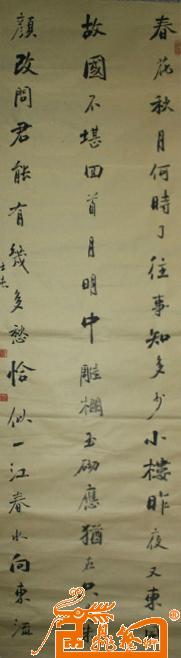 春花秋月何時了往事知多少小樓昨夜又東風
故國不堪回首月明中雕欄玉砌應猶在只是朱
顏改問君能有幾多愁恰似一江春水向東流